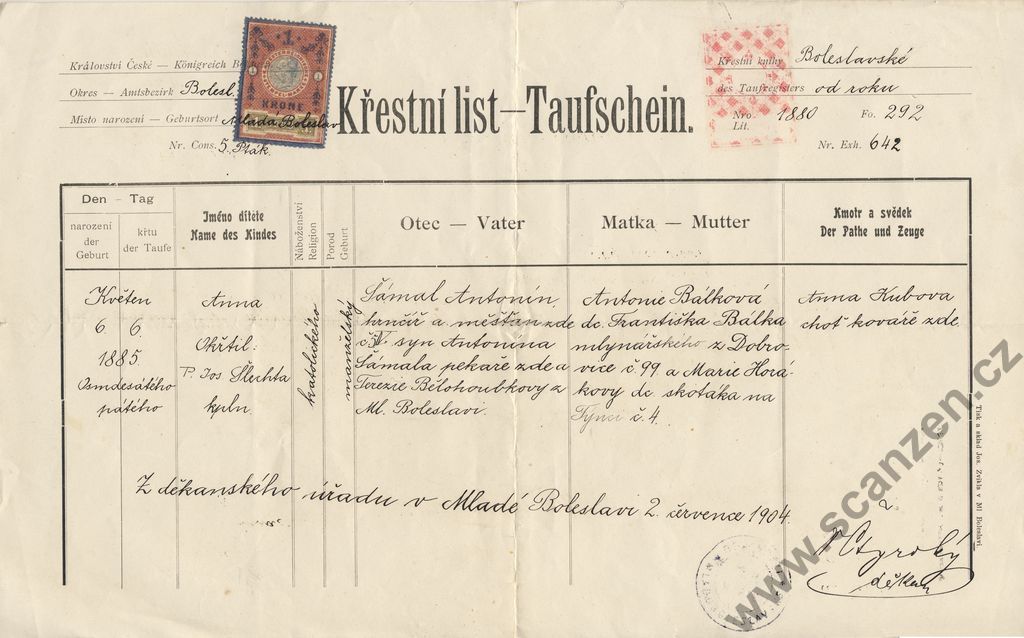 Království České — Königreich B
Okres — Amtsbezirk Bolesl.
Místo narození — Geburtsort Mladá Boleslav
Nr. Cons. 5. Pták.
1
KRONE
Křestní list — Taufschein.
Křestní knihy Boleslavské
des Taufregisters od roku
Nro. 1880 Fo. 292
Lit.
Nr. Exh. 642
Den – Tag
narození
der
Geburt
křtu
der Taufe
Jméno dítěte
Name des Kindes
Náboženství
Religion
Porod
Geburt
Otec — Vater
Matka — Mutter
Kmotr a svědek
Der Pathe und Zeuge
Květen
6. 6.
1885.
Osmdesátého
pátého
Anna
Okřtil:
P. Jos. Šlechta
kpln.
katolického
manželský
Šámal Antonín,
hrnčíř a měšťan zde
syn Antonína
Šámala pekaře zde a
Terezie Bělohoubkovy z
Ml. Boleslavi.
Antonie Bálková
dc. Františka Bálka
mlynářského z Dobro-
vice č. 99 a Marie Horá-
kovy dc. skotáka na
Týnci č. 4.
Anna Kubova
choť kováře zde.
Z děkanského úřadu v Mladé Boleslavi 2. července 1904.
děkan
Tisk a sklad Jos. Zvikla v Ml. Boleslavi.
www.scanzen.cz